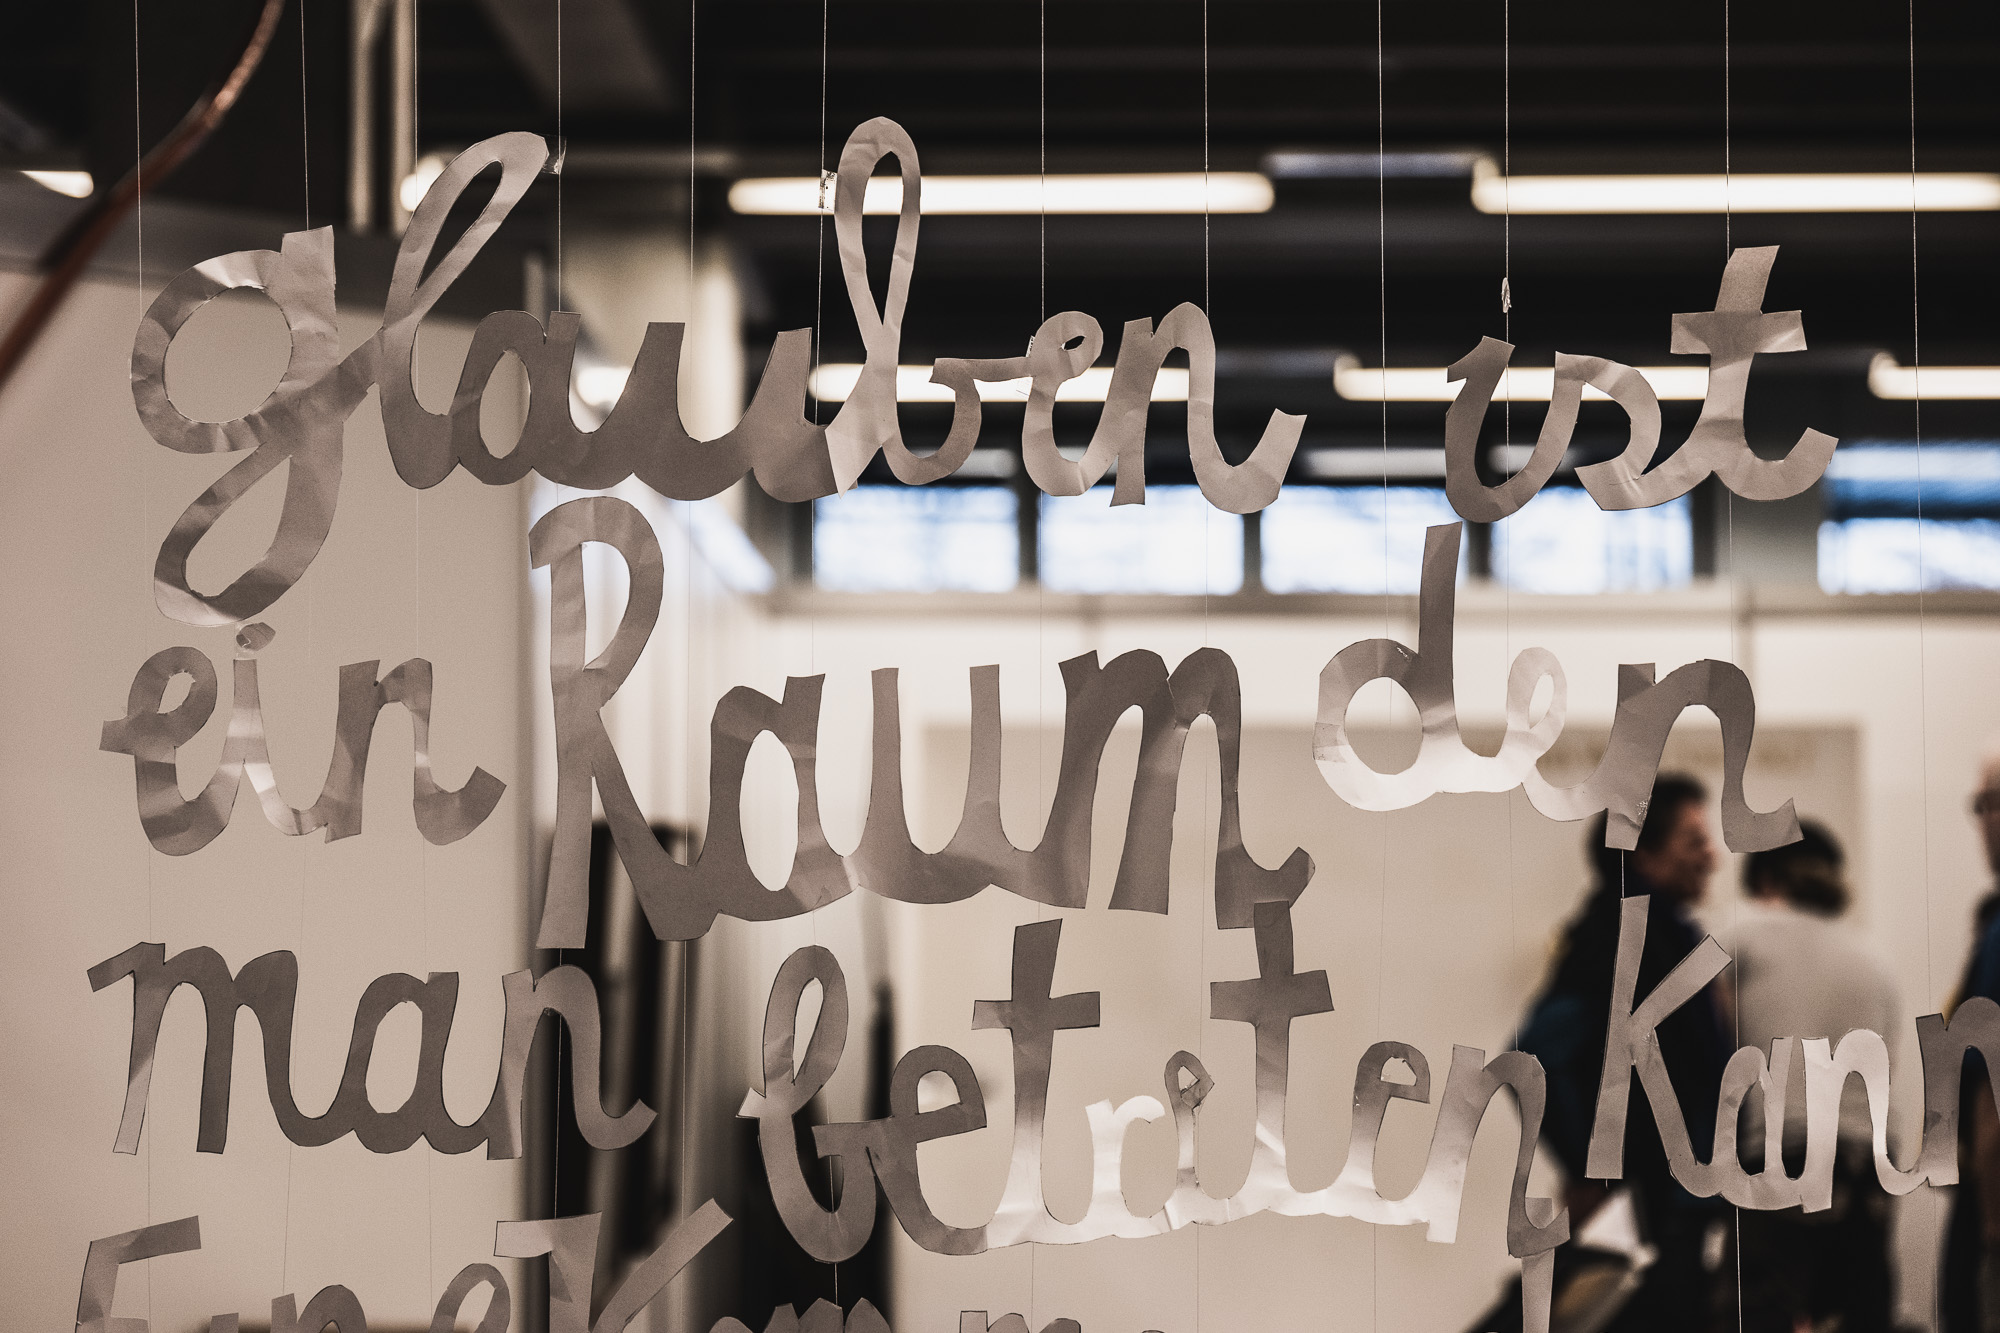 glauben ist
ein Raum den
man betreten Kann